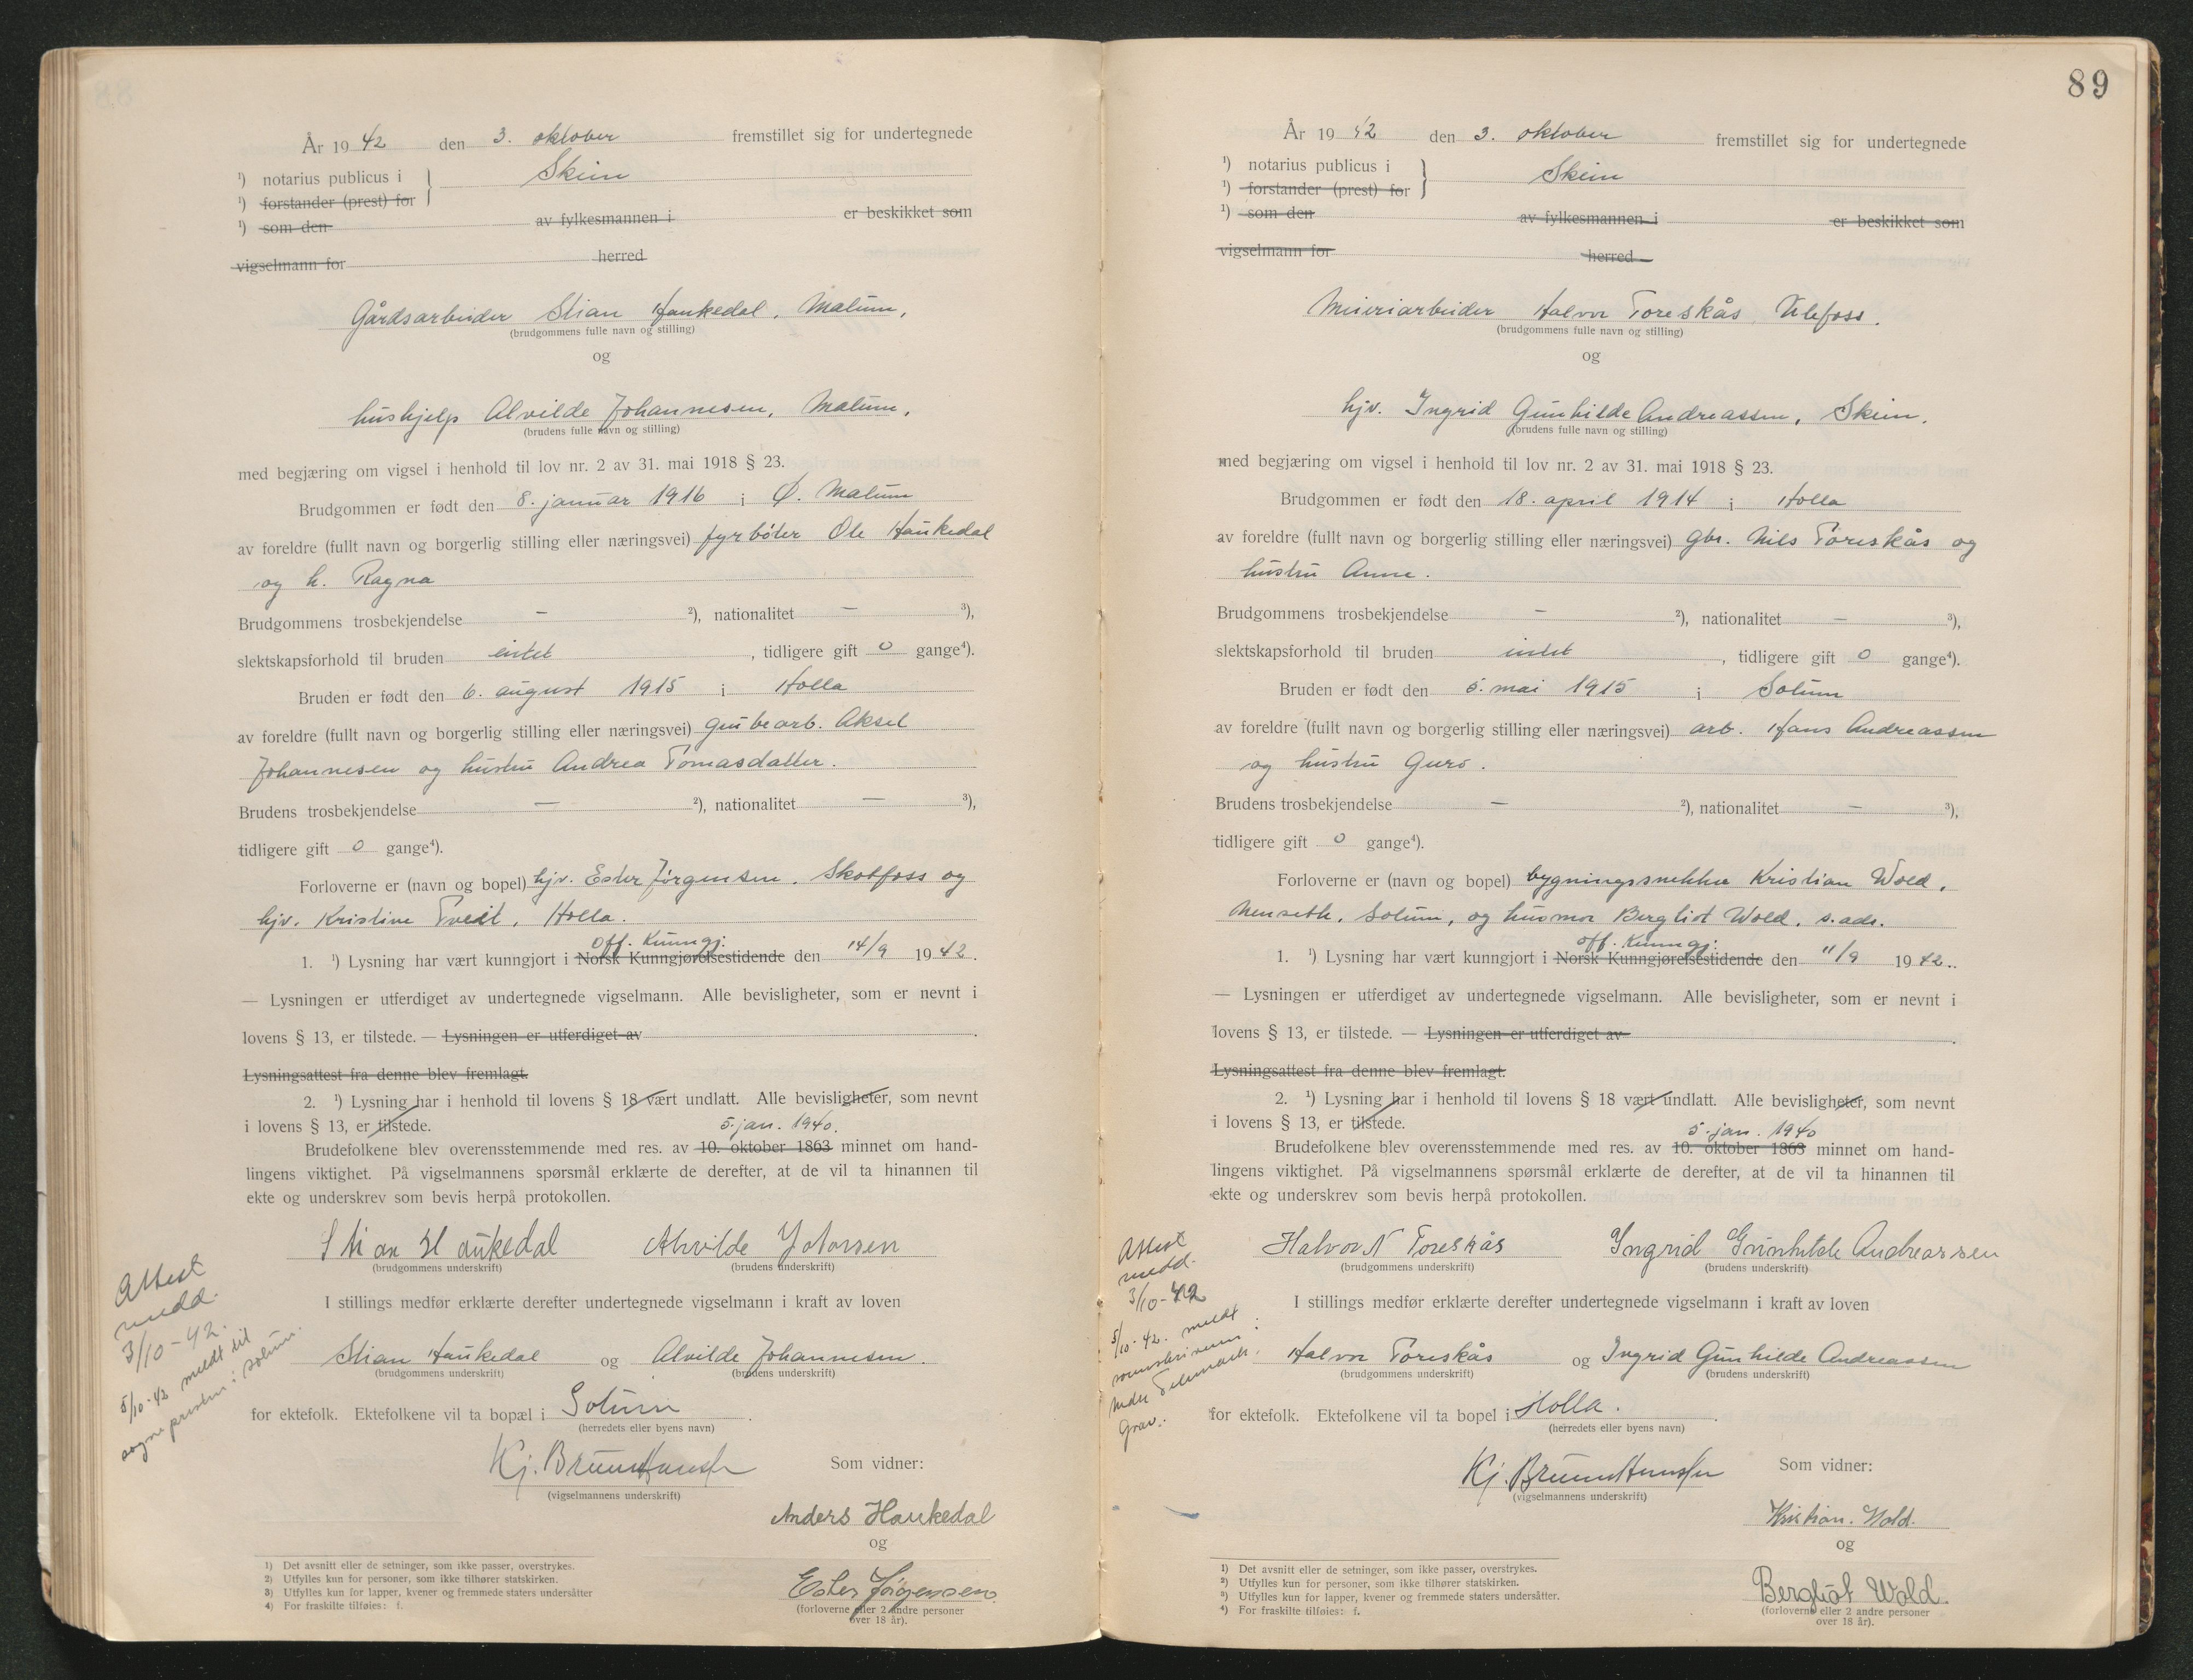 År 1942 den 3. oktober fremstillet sig for undertegnede
¹) notarius publicus i } Skien
¹) forstander (prest) for
¹) som den av fylkesmannen i er beskikket som
vigselmann for herred
Gårdsarbeider Stian Haukedal, Melum,
(brudgommens fulle navn og stilling)
og
hushjelp Alvilde Johannesen, Melum,
(brudens fulle navn og stilling)
med begjæring om vigsel i henhold til lov nr. 2 av 31. mai 1918 § 23.
Brudgommen er født den 8. januar 1916 i Ø. Melum
av foreldre (fullt navn og borgerlig stilling eller næringsvei) fyrbøter Ole Haukedal
og h. Ragna
Brudgommens trosbekjendelse — ²), nationalitet — ³),
slektskapsforhold til bruden intet, tidligere gift 0 gange⁴).
Bruden er født den 6. august 1915 i Holla
av foreldre (fullt navn og borgerlig stilling eller næringsvei) grubearb. Aksel
Johannesen og hustru Andrea Tomasdatter.
Brudens trosbekjendelse — ²), nationalitet — ³),
tidligere gift 0 gange⁴).
Forloverne er (navn og bopel) hjv. Ester Jørgensen, Skotfoss og
hjv. Kristine Tvedt, Holla.
off. Kunngj.
1. ¹) Lysning har vært kunngjort i Norsk Kunngjørelsestidende den 14/9 1942.
— Lysningen er utferdiget av undertegnede vigselmann. Alle bevisligheter, som er nevnt i
lovens § 13, er tilstede. — Lysningen er utferdiget av
Lysningsattest fra denne blev fremlagt.
2. ¹) Lysning har i henhold til lovens § 18 vært undlatt. Alle bevisligheter, som nevnt
i lovens § 13, er tilstede.
5. jan. 1940.
Brudefolkene blev overensstemmende med res. av 10. oktober 1863 minnet om hand-
lingens viktighet. På vigselmannens spørsmål erklærte de derefter, at de vil ta hinannen til
ekte og underskrev som bevis herpå protokollen.
Stian Haukedal Alvilde
(brudgommens underskrift) (brudens underskrift)
I stillings medfør erklærte derefter undertegnede vigselmann i kraft av loven
Stian Haukedal og Alvilde Johannesen.
(brudgommens underskrift) (brudens underskrift)
for ektefolk. Ektefolkene vil ta bopæl i Solum.
(herredets eller byens navn)
Kj. Bruun Hanssen Som vidner:
(vigselmannens underskrift)
Anders Haukedal
og
Ester Jørgensen
(forloverne eller 2 andre personer
over 18 år).
Attest
medd.
3/10-42.
5/10-42 meldt til
sognepresten i Solum.
1) Det avsnitt eller de setninger, som ikke passer, overstrykes.
2) Utfylles kun for personer, som ikke tilhører statskirken.
3) Utfylles kun for lapper, kvener og fremmede staters undersåtter
4) For fraskilte tilføies: f.
89
År 1942 den 3. oktober fremstillet sig for undertegnede
¹) notarius publicus i } Skien
¹) forstander (prest) for
¹) som den av fylkesmannen i er beskikket som
vigselmann for herred
Meieriarbeider Halvor Toreskås, Ulefoss.
(brudgommens fulle navn og stilling)
og
hjv. Ingrid Gunhilde Andreassen, Skien.
(brudens fulle navn og stilling)
med begjæring om vigsel i henhold til lov nr. 2 av 31. mai 1918 § 23.
Brudgommen er født den 18. april 1914 i Holla
av foreldre (fullt navn og borgerlig stilling eller næringsvei) gbr. Nils Toreskås og
hustru Anne.
Brudgommens trosbekjendelse — ²), nationalitet — ³),
slektskapsforhold til bruden intet, tidligere gift 0 gange⁴).
Bruden er født den 5. mai 1915 i Solum
av foreldre (fullt navn og borgerlig stilling eller næringsvei) arb. Hans Andreassen
og hustru Guro.
Brudens trosbekjendelse — ²), nationalitet — ³),
tidligere gift 0 gange⁴).
Forloverne er (navn og bopel) bygningssnekker Kristian Wold,
Menseth, Solum, og husmor Bergliot Wold, s.ads.
off. Kunngj.
1. ¹) Lysning har vært kunngjort i Norsk Kunngjørelsestidende den 11/9 1942.
— Lysningen er utferdiget av undertegnede vigselmann. Alle bevisligheter, som er nevnt i
lovens § 13, er tilstede. — Lysningen er utferdiget av
Lysningsattest fra denne blev fremlagt.
2. ¹) Lysning har i henhold til lovens § 18 vært undlatt. Alle bevisligheter, som nevnt
i lovens § 13, er tilstede.
5. jan. 1940
Brudefolkene blev overensstemmende med res. av 10. oktober 1863 minnet om hand-
lingens viktighet. På vigselmannens spørsmål erklærte de derefter, at de vil ta hinannen til
ekte og underskrev som bevis herpå protokollen.
Halvor N Toreskås Ingrid Gunhilde Andreassen
(brudgommens underskrift) (brudens underskrift)
I stillings medfør erklærte derefter undertegnede vigselmann i kraft av loven
Halvor Toreskås og Ingrid Gunhilde Andreassen
(brudgommens underskrift) (brudens underskrift)
for ektefolk. Ektefolkene vil ta bopel i Holla.
(herredets eller byens navn)
Kj. Bruun Hanssen Som vidner:
(vigselmannens underskrift)
Kristian. Wold.
og
Bergliot Wold.
(forloverne eller 2 andre personer
over 18 år).
Attest
medd.
3/10-42
5/10-42. meldt
sorenskriveren i
nedre Telemark,
1) Det avsnitt eller de setninger, som ikke passer, overstrykes.
2) Utfylles kun for personer, som ikke tilhører statskirken.
3) Utfylles kun for lapper, kvener og fremmede staters undersåtter.
4) For fraskilte tilføies: f.